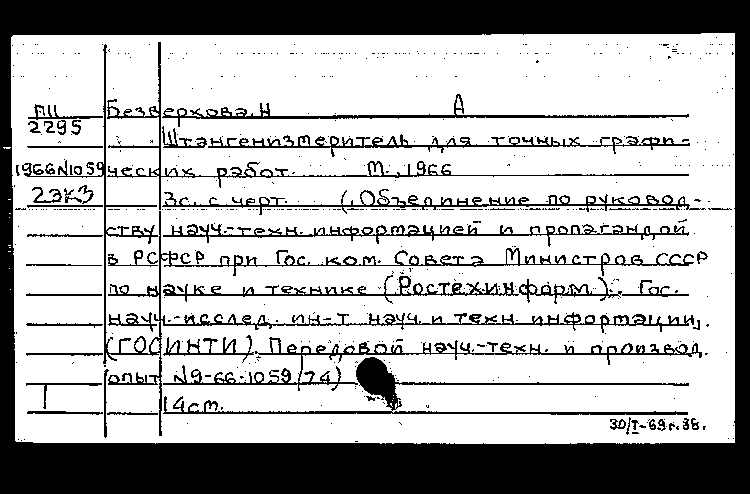 ПII Безверкова. Н А
2295
Штангенизмеритель для точных графи-
1966N1059 ческих работ. М., 1966
2ЭКЗ 3с. с черт. (,,Объединение по руковод-
ству науч.-техн. информацией и пропагандой
в РСФСР при Гос. ком. Совета Министров СССР
по науке и технике (Ростехинформ). Гос.
науч.-исслед. ин-т науч. и техн. информации,.
(ГОСИНТИ). Передовой науч.-техн. и производ.
опыт N9-66-1059/74)
1 14см.
30/I-69г. 38.